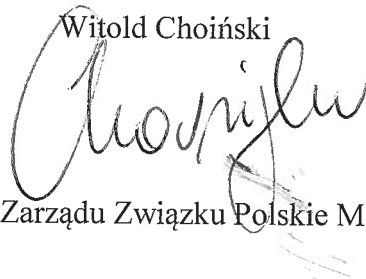 Witold Choiński
Zarządu Związku Polskie M